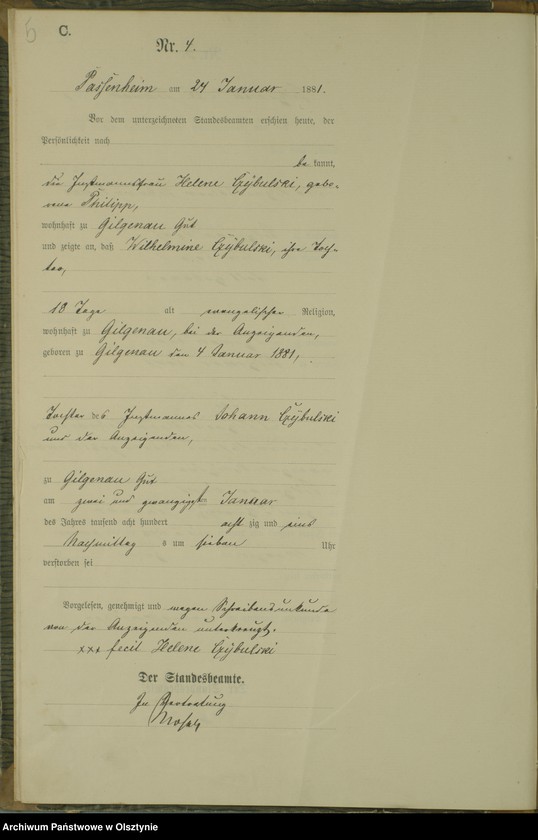 C.
Nr. 4.
Passenheim am 24 Januar 1881.
Vor dem unterzeichneten Standesbeamten erschien heute, der
Persönlichkeit nach
bekannt,
die Instmannsfrau Helene Czybulski, gebo-
rene Philipp,
wohnhaft zu Gilgenau Gut
und zeigte an, daß Wilhelmine Czybulski, ihre Toch-
ter,
18 Tage alt evangelischer Religion,
wohnhaft zu Gilgenau, bei der Anzeigenden,
geboren zu Gilgenau den 4 Januar 1881,
Tochter des Instmannes Johann Czybulski
und der Anzeigenden,
zu Gilgenau Gut
am zwei und zwanzigsten Januar
des Jahres tausend acht hundert achtzig und eins
Nachmittags um sieben Uhr
verstorben sei
Vorgelesen, genehmigt und wegen Schreibensunkunde
von der Anzeigenden unterkreuzt.
xxx fecit Helene Czybulski
Der Standesbeamte.
In Vertretung
Archiwum Państwowe w Olsztynie